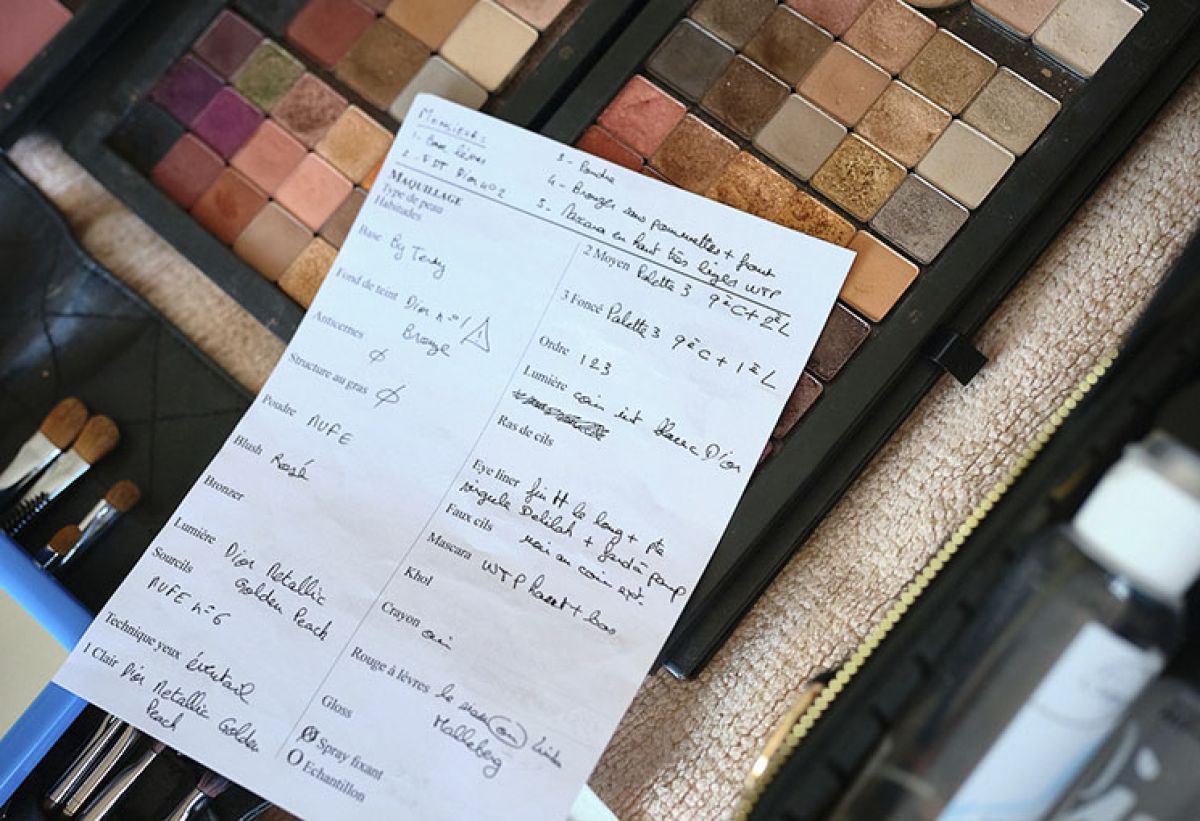 Monsieur:
1. Base lèvres
2. FDT Dior n°2
3 - Poudre
4 - Bronzer sous pommettes + front
5. Mascara en haut très léger WTP
MAQUILLAGE
Type de peau
Habitudes
Base By Terry
Fond de teint Dior n°1
Bronze
Anticernes ϕ
Structure au gras ϕ
Poudre MUFE
Blush Rosé
Bronzer
Lumière Dior Metallic
Golden Peach
Sourcils
MUFE n°6
Technique yeux éventail
1 Clair Dior Metallic Golden
Peach
2 Moyen Palette 3 9èC + 2èL
3 Foncé Palette 3 9èC + 1èL
Ordre 123
Lumière coin int blanc Dior
Ras de cils
Eye liner fin tt le long + pte
virgule Delilah + fard à paup
noir au coin ext.
Faux cils
Mascara WTP haut + bas
Khol
Crayon oui
Rouge à lèvres le
ou
Malleberg
Gloss
Ø Spray fixant
O Echantillon